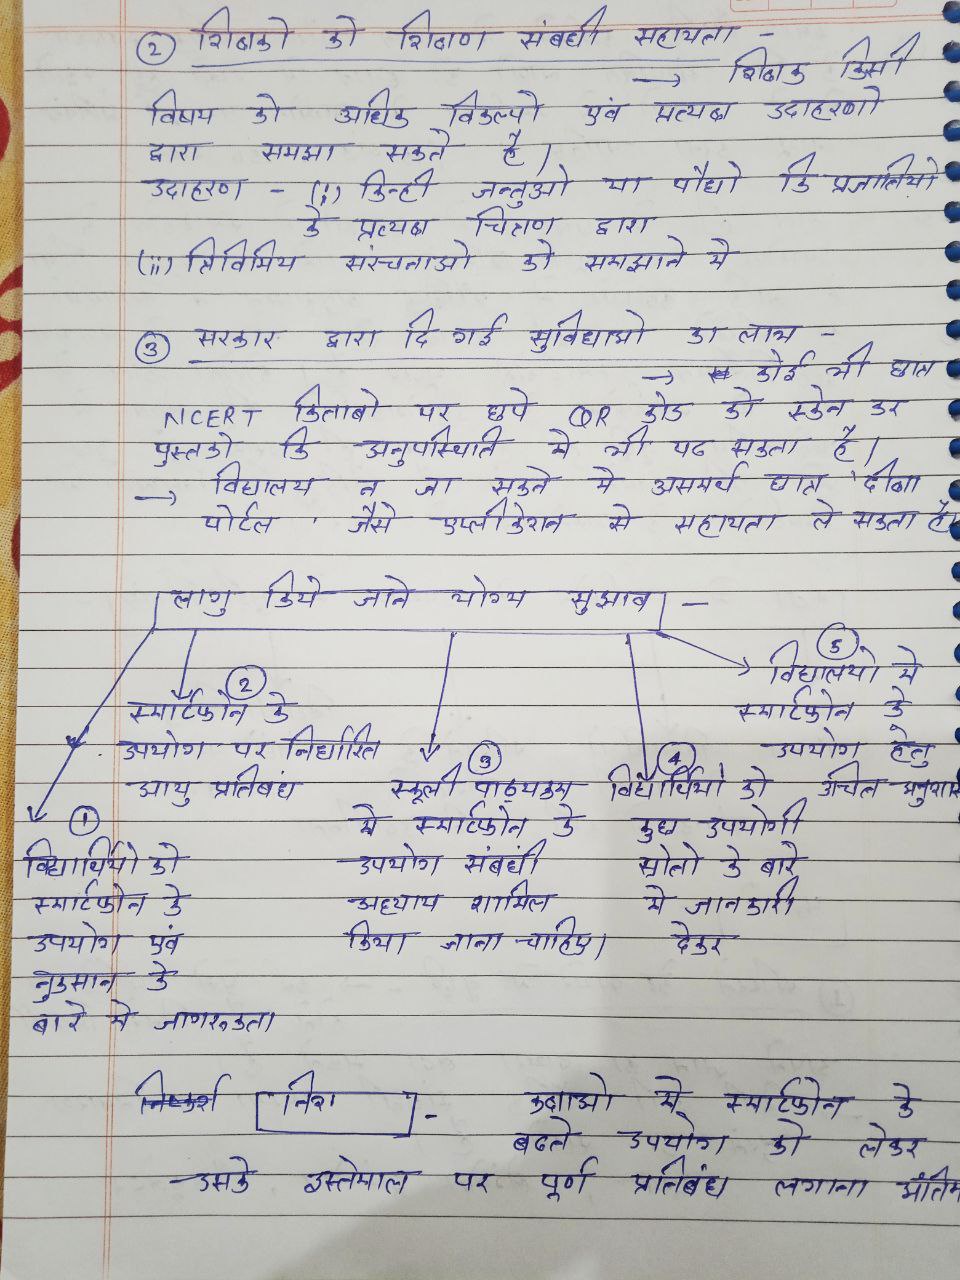 ② शिक्षको को शिक्षण संबधी सहायता -
→ शिक्षक किसी
विषय को अधिक विकल्पो एवं प्रत्यक्ष उदाहरणो
द्वारा समझा सकते है।
उदाहरण - (i) किन्ही जन्तुओ या पौधो कि प्रजातियो
के प्रत्यक्ष चित्रण द्वारा
(ii) त्रिविमिय संरचनाओ को समझाने मे
③ सरकार द्वारा दि गई सुविधाओ का लाभ -
→ कोई भी छात्र
NCERT किताबो पर छपे QR कोड को स्केन कर
पुस्तको कि अनुपस्थिति मे भी पढ सकता है।
→ विद्यालय न जा सकने मे असमर्थ छात्र 'दीक्षा
पोर्टल' जैसे एप्लीकेशन से सहायता ले सकता है।
लागु किये जाने योग्य सुझाव -
①
विद्यार्थियो को
स्मार्टफोन के
उपयोग एवं
नुकसान के
बारे मे जागरूकता
②
स्मार्टफोन के
उपयोग पर निर्धारित
आयु प्रतिबंध
③
स्कूली पाठ्यक्रम
मे स्मार्टफोन के
उपयोग संबंधी
अध्याय शामिल
किया जाना चाहिए।
④
विद्यार्थियो को
कुछ उपयोगी
स्रोतो के बारे
मे जानकारी
देकर
⑤
विद्यालयो मे
स्मार्टफोन के
उपयोग हेतु
उचित
निष्कर्श - कक्षाओ मे स्मार्टफोन के
बढते उपयोग को लेकर
उसके इस्तेमाल पर पूर्ण प्रतिबंध लगाना अंतिम